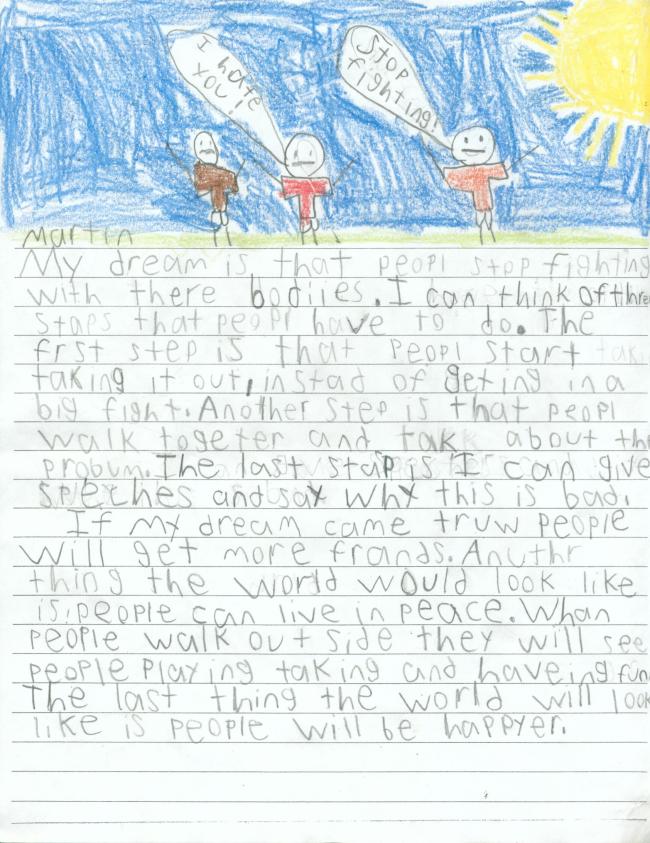 I hate
you!
Stop
fighting!
martin
My dream is that peopl stop fighting
with there bodiies. I can think of three
staps that peopl have to do. The
frst step is that peopl start
taking it out, instad of geting in a
big fight. Another step is that peopl
walk togeter and tak about the
probum. The last stap is I can give
speches and say why this is bad.
If my dream came truw people
will get more frands. Anuthr
thing the world would look like
is, people can live in peace. Whan
people walk out side they will see
people playing taking and haveing fun
The last thing the world will look
like is people will be happyer.